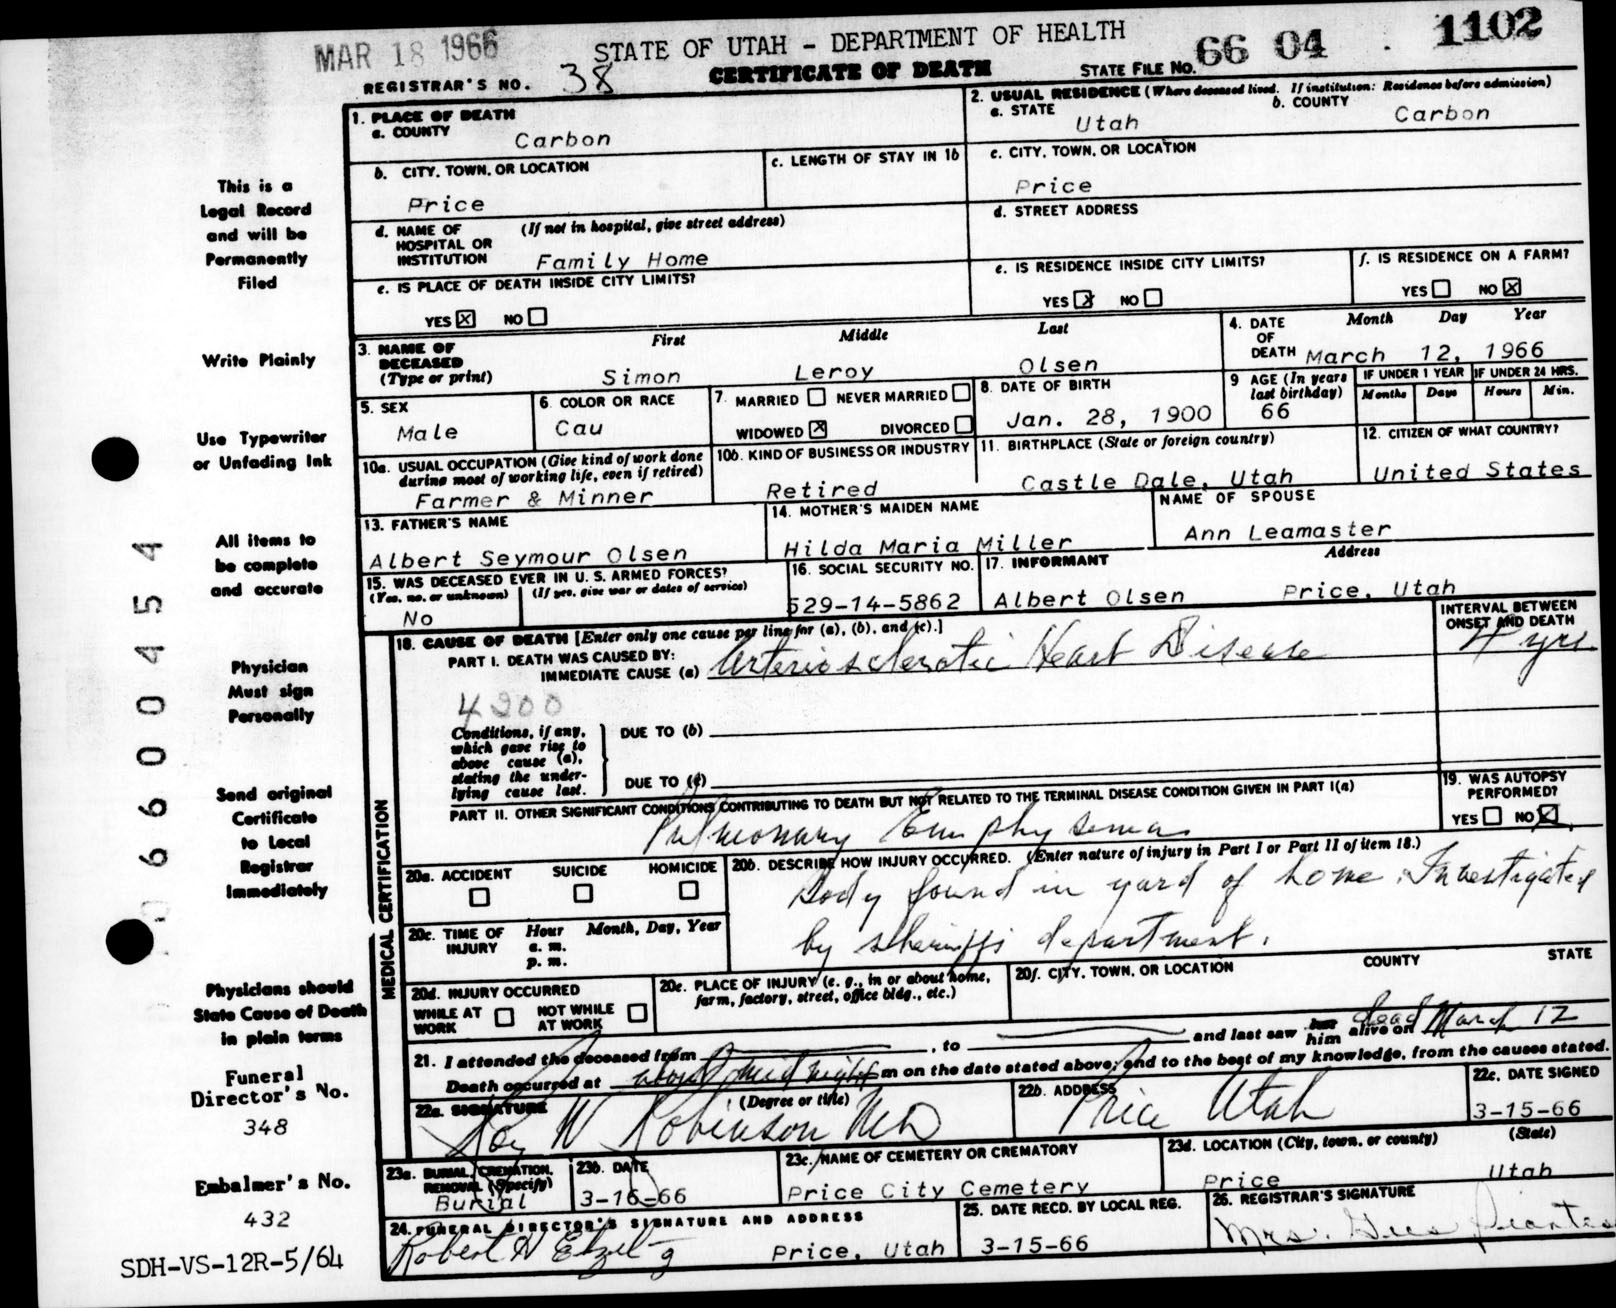 MAR 18 1966
STATE OF UTAH - DEPARTMENT OF HEALTH
66 04 . 1102
REGISTRAR'S NO. 38
CERTIFICATE OF DEATH
STATE FILE NO.
1. PLACE OF DEATH
a. COUNTY
Carbon
2. USUAL RESIDENCE (Where deceased lived. If institution: Residence before admission)
a. STATE
Utah
b. COUNTY
Carbon
b. CITY, TOWN, OR LOCATION
Price
c. LENGTH OF STAY IN 1b
c. CITY, TOWN, OR LOCATION
Price
d. NAME OF HOSPITAL OR INSTITUTION
(If not in hospital, give street address)
Family Home
d. STREET ADDRESS
e. IS PLACE OF DEATH INSIDE CITY LIMITS?
YES ☒ NO ☐
e. IS RESIDENCE INSIDE CITY LIMITS?
YES ☒ NO ☐
f. IS RESIDENCE ON A FARM?
YES ☐ NO ☒
3. NAME OF DECEASED
(Type or print)
First Middle Last
Simon Leroy Olsen
4. DATE OF DEATH
Month Day Year
March 12, 1966
5. SEX
Male
6. COLOR OR RACE
Cau
7. MARRIED ☐ NEVER MARRIED ☐
WIDOWED ☒ DIVORCED ☐
8. DATE OF BIRTH
Jan. 28, 1900
9 AGE (In years last birthday)
66
IF UNDER 1 YEAR
Months Days
IF UNDER 24 HRS.
Hours Min.
10a. USUAL OCCUPATION (Give kind of work done during most of working life, even if retired)
Farmer & Minner
10b. KIND OF BUSINESS OR INDUSTRY
Retired
11. BIRTHPLACE (State or foreign country)
Castle Dale, Utah
12. CITIZEN OF WHAT COUNTRY?
United States
13. FATHER'S NAME
Albert Seymour Olsen
14. MOTHER'S MAIDEN NAME
Hilda Maria Miller
NAME OF SPOUSE
Ann Leamaster
15. WAS DECEASED EVER IN U. S. ARMED FORCES?
(Yes, no, or unknown) (If yes, give war or dates of service)
No
16. SOCIAL SECURITY NO.
529-14-5862
17. INFORMANT
Address
Albert Olsen Price, Utah
18. CAUSE OF DEATH [Enter only one cause per line for (a), (b), and (c).]
INTERVAL BETWEEN ONSET AND DEATH
PART I. DEATH WAS CAUSED BY:
IMMEDIATE CAUSE (a) Arteriosclerotic Heart Disease
4 yrs
4200
Conditions, if any, which gave rise to above cause (a), stating the underlying cause last.
DUE TO (b)
DUE TO (c)
PART II. OTHER SIGNIFICANT CONDITIONS CONTRIBUTING TO DEATH BUT NOT RELATED TO THE TERMINAL DISEASE CONDITION GIVEN IN PART I(a)
Pulmonary Emphysema
19. WAS AUTOPSY PERFORMED?
YES ☐ NO ☒
MEDICAL CERTIFICATION
20a. ACCIDENT SUICIDE HOMICIDE
☐ ☐ ☐
20b. DESCRIBE HOW INJURY OCCURRED. (Enter nature of injury in Part I or Part II of item 18.)
Body found in yard of home. Investigated
by sheriffs department.
20c. TIME OF INJURY
Hour Month, Day, Year
a. m.
p. m.
20d. INJURY OCCURRED
WHILE AT WORK ☐ NOT WHILE AT WORK ☐
20e. PLACE OF INJURY (e. g., in or about home, farm, factory, street, office bldg., etc.)
20f. CITY, TOWN, OR LOCATION COUNTY STATE
21. I attended the deceased from , to and last saw her him alive on dead March 12
Death occurred at about midnight m on the date stated above; and to the best of my knowledge, from the causes stated.
22a. SIGNATURE (Degree or title)
Roy W Robinson MD
22b. ADDRESS
Price Utah
22c. DATE SIGNED
3-15-66
23a. BURIAL, CREMATION, REMOVAL (Specify)
Burial
23b. DATE
3-16-66
23c. NAME OF CEMETERY OR CREMATORY
Price City Cemetery
23d. LOCATION (City, town, or county) (State)
Price Utah
24. FUNERAL DIRECTOR'S SIGNATURE AND ADDRESS
Robert N Etzel Price, Utah
25. DATE RECD. BY LOCAL REG.
3-15-66
26. REGISTRAR'S SIGNATURE
Mrs.
This is a
Legal Record
and will be
Permanently
Filed
Write Plainly
Use Typewriter
or Unfading Ink
All items to
be complete
and accurate
Physician
Must sign
Personally
Send original
Certificate
to Local
Registrar
Immediately
Physicians should
State Cause of Death
in plain terms
Funeral
Director's No.
348
Embalmer's No.
432
SDH-VS-12R-5/64
0 6 6 0 0 4 5 4